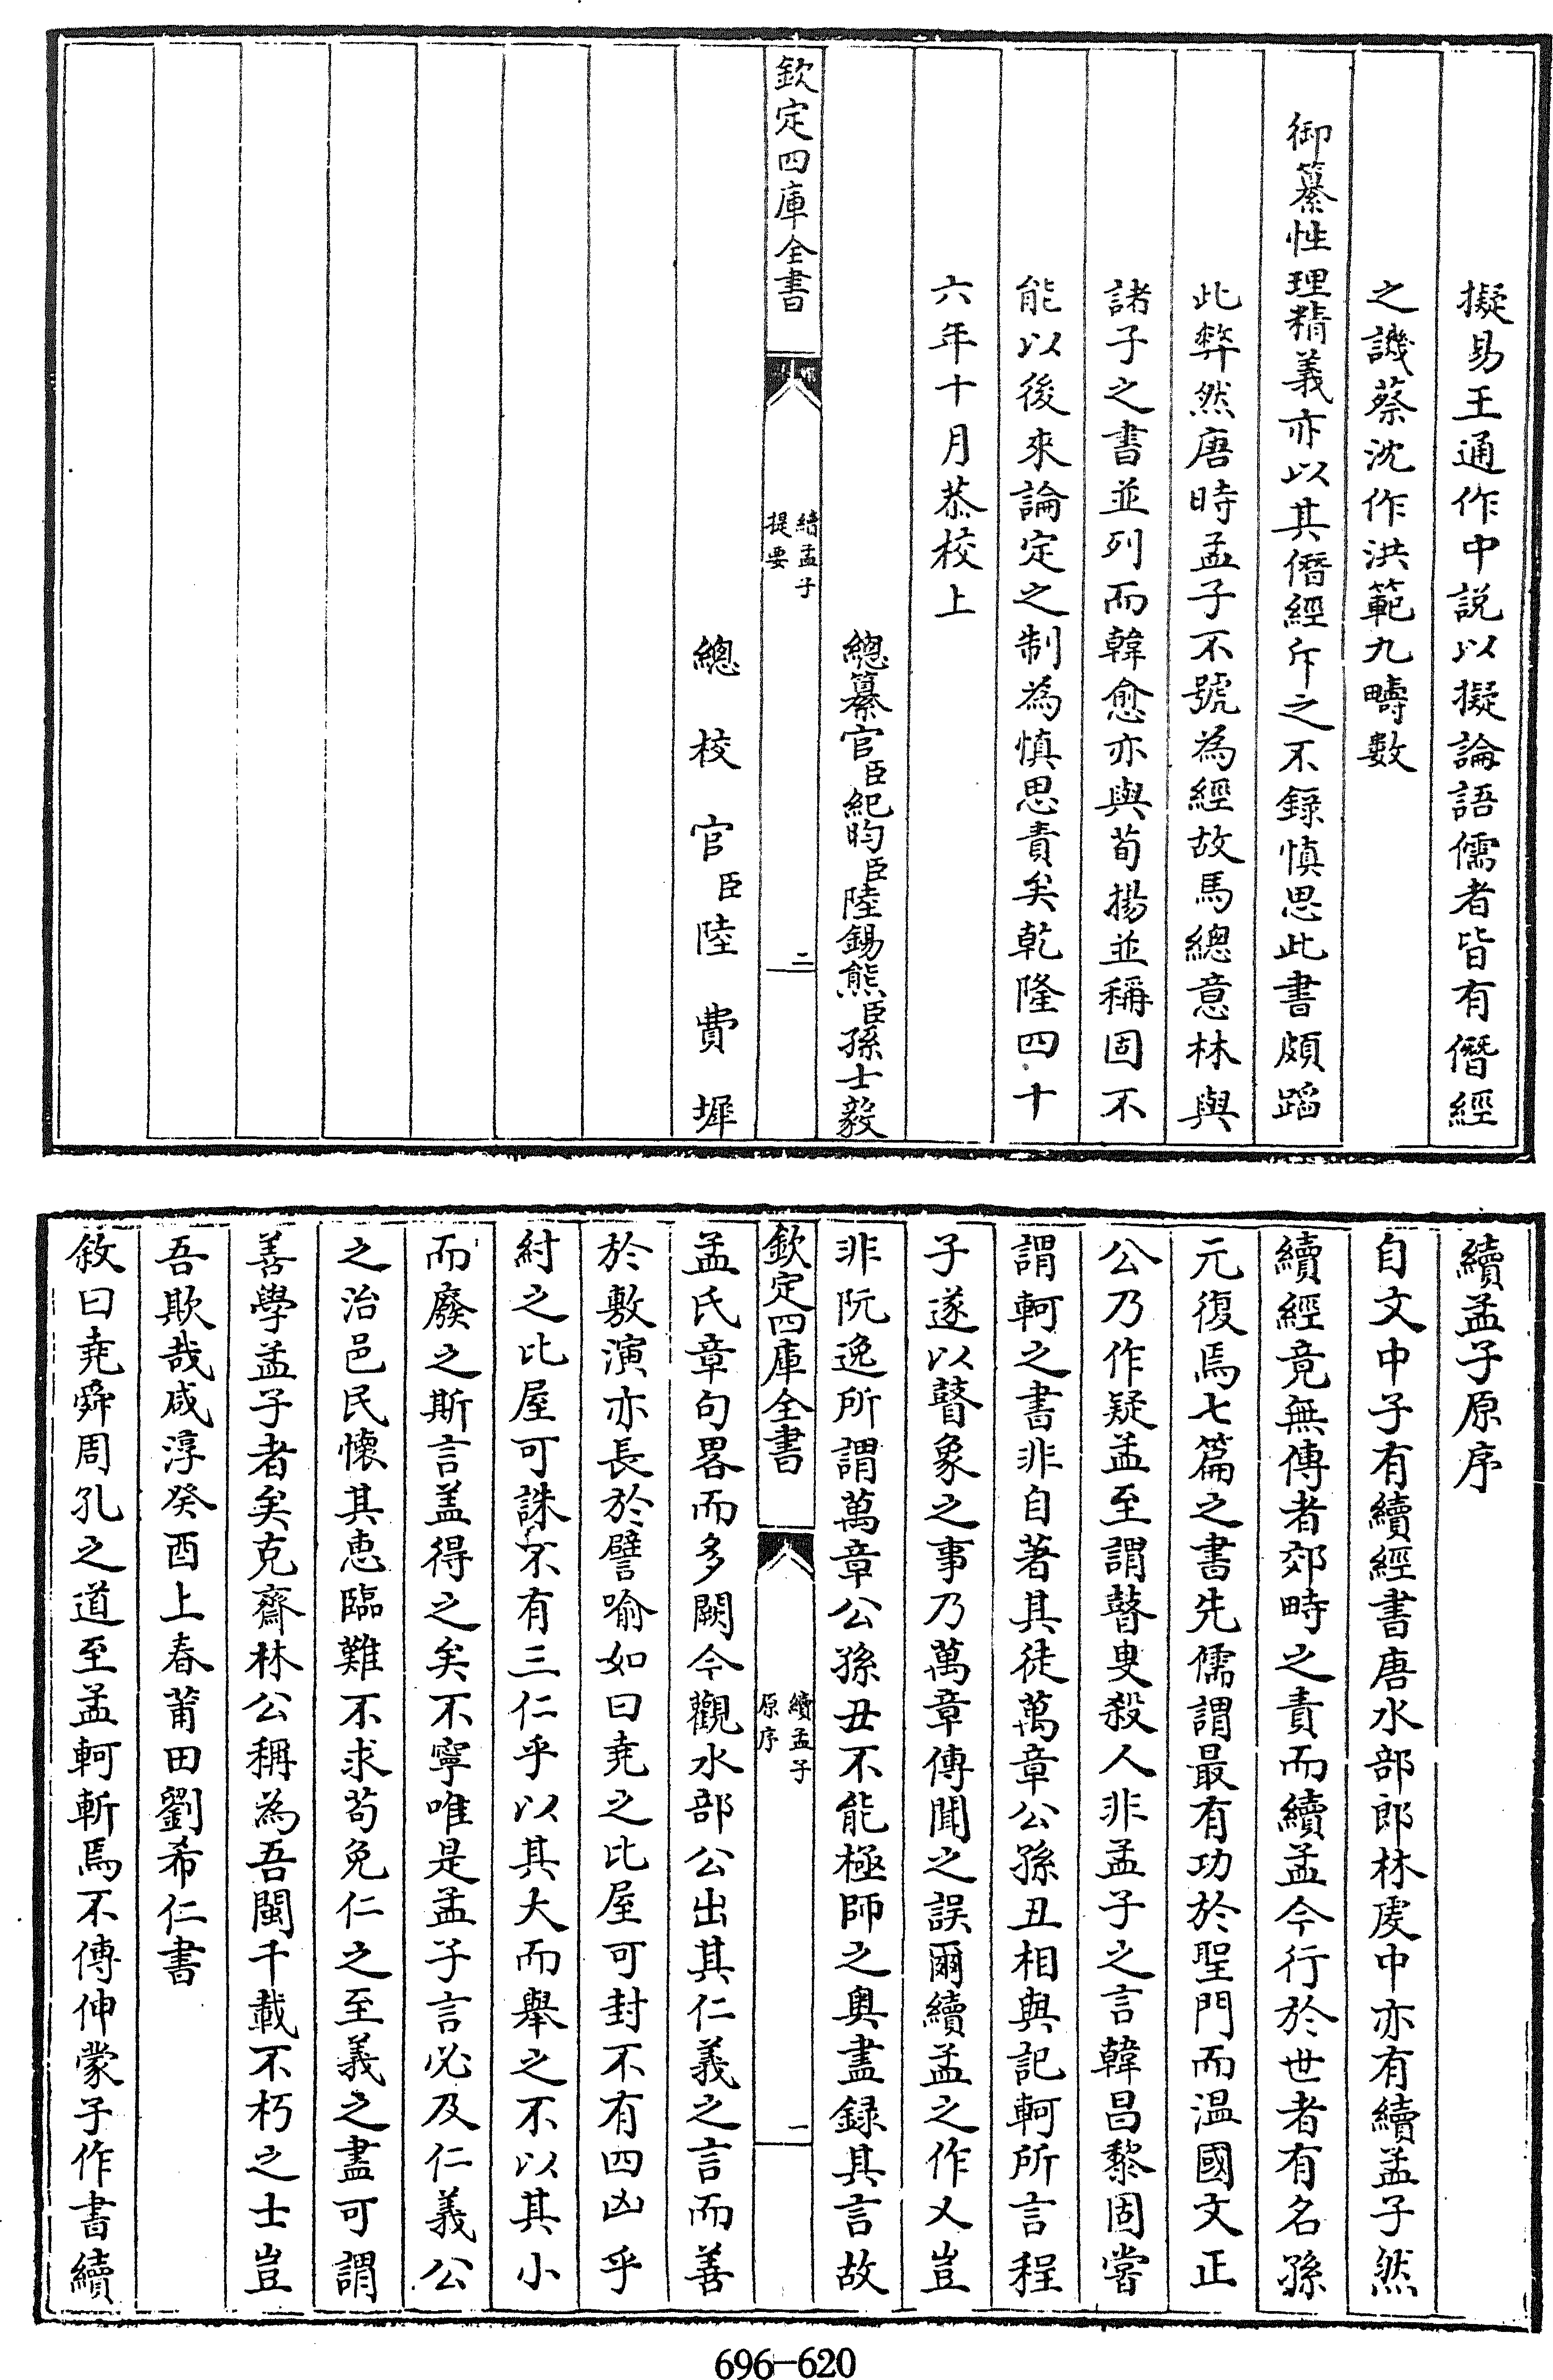 擬易王通作中説以擬論語儒者皆有僭經
之譏蔡沈作洪範九疇數
御纂性理精義亦以其僭經斥之不錄慎思此書頗蹈
此弊然唐時孟子不號為經故馬總意林與
諸子之書並列而韓愈亦與荀揚並稱固不
能以後來論定之制為慎思責矣乾隆四十
六年十月恭校上
總纂官臣紀昀臣陸錫熊臣孫士毅
欽定四庫全書
續孟子
提要
二
總校官臣陸費墀
續孟子原序
自文中子有續經書唐水部郎林䖍中亦有續孟子然
續經竟無傳者郊時之責而續孟今行於世者有名孫
元復焉七篇之書先儒謂最有功於聖門而温國文正
公乃作疑孟至謂瞽叟殺人非孟子之言韓昌黎固嘗
謂軻之書非自著其徒萬章公孫丑相與記軻所言程
子遂以瞽象之事乃萬章傳聞之誤爾續孟之作又豈
非阮逸所謂萬章公孫丑不能極師之奥盡録其言故
欽定四庫全書
續孟子
原序
一
孟氏章句畧而多闕今觀水部公出其仁義之言而善
於敷演亦長於譬喻如曰堯之比屋可封不有四凶乎
紂之比屋可誅不有三仁乎以其大而舉之不以其小
而廢之斯言盖得之矣不寜唯是孟子言必及仁義公
之治邑民懐其恵臨難不求苟免仁之至義之盡可謂
善學孟子者矣克齋林公稱為吾閩千載不朽之士豈
吾欺哉咸淳癸酉上春莆田劉希仁書
敘曰堯舜周孔之道至孟軻斬焉不傳伸蒙子作書續
696-620